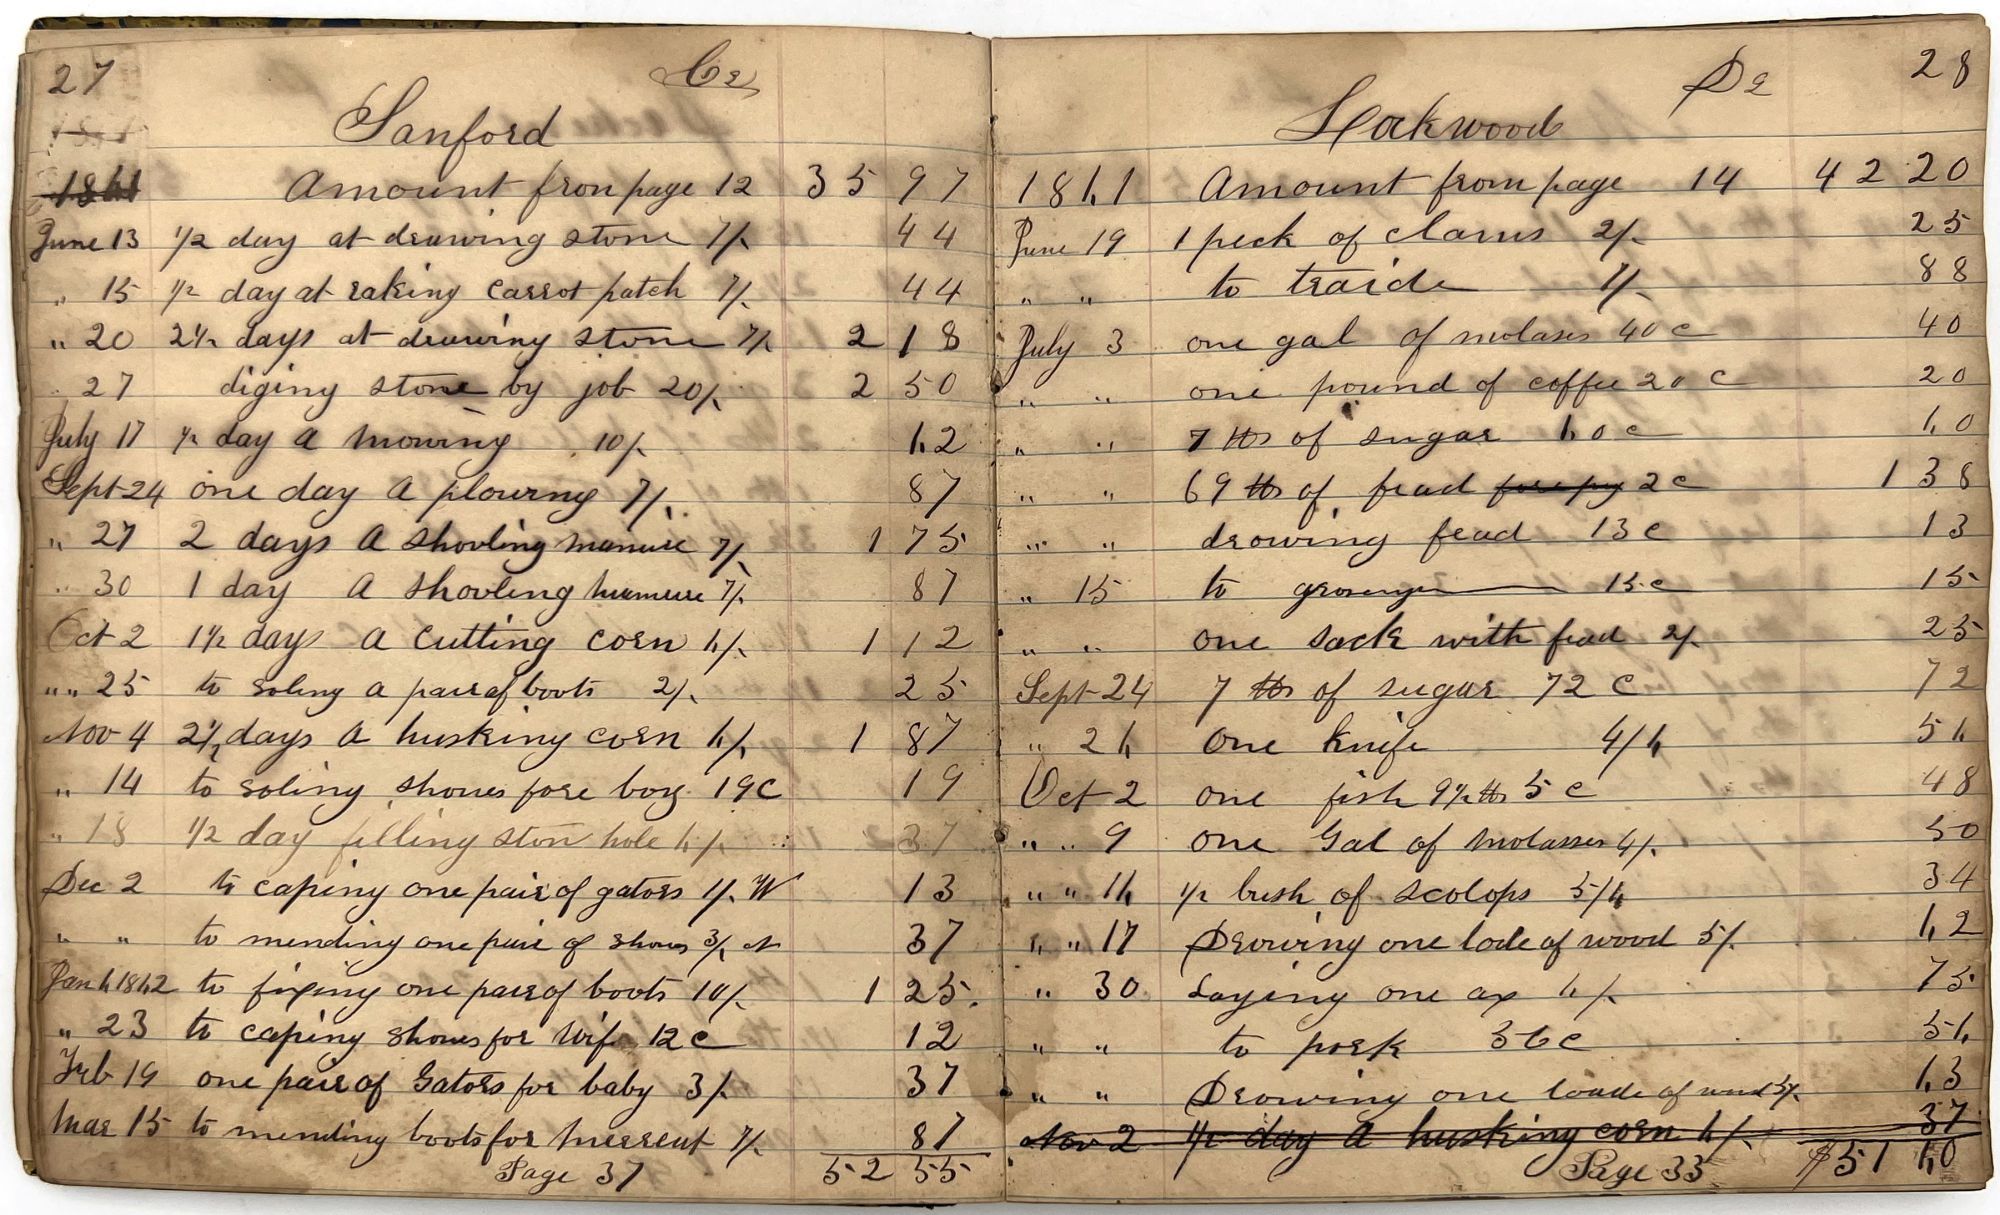 27 Cr
Sanford
1861 Amount fron page 12 35 97
June 13 1/2 day at drawing stone 7/. 44
" 15 1/2 day at raking carrot patch 7/. 44
" 20 2 1/2 days at drawing stone 7/. 2 18
" 27 diging stone by job 20/. 2 50
July 17 1/2 day A mowing 10/. 62
Sept 24 one day A plowing 7/. 87
" 27 2 days A shovling manure 7/. 1 75
" 30 1 day A shovling manure 7/. 87
Oct 2 1 1/2 days A cutting corn 6/. 1 12
" " 25 to soling a pair of boots 2/. 25
Nov 4 2 1/2 days A husking corn 6/. 1 87
" 14 to soling shoues fore boy 19c 19
" 18 1/2 day filling ston hole 6/. 37
Dec 2 to caping one pair of gators 1/. W 13
" " to mending one pair of shoues 3/. 37
Jan 6 1862 to fixing one pair of boots 10/. 1 25
" 23 to caping shoues for wife 12c 12
Feb 19 one pair of Gators for baby 3/. 37
Mar 15 to mending boots for 7/. 87
Page 37 52 55
Dr 28
Lockwood
1861 Amount from page 14 42 20
June 19 1 peck of clams 2/. 25
" " to traide 7/. 88
July 3 one gal of molases 40c 40
" " one pound of coffee 20c 20
" " 7 lbs of sugar 60c 60
" " 69 lbs of fead 2c 1 38
" " drowing fead 13c 13
" 15 to 15c 15
" " one sack with fead 2/. 25
Sept 24 7 lbs of sugar 72c 72
" 26 one knife 4/6 56
Oct 2 one fish 9 1/2 lbs 5c 48
" " 9 one Gal of molasses 4/. 50
" " 16 1/2 bush of scolops 5/6 34
" " 17 Drowing one lode of wood 5/. 62
" 30 Laying one ax 6/. 75
" " to pork 56c 56
" " Drowing one loade of wood 5/. 63
Nov 2 1/2 day A husking corn 6/. 37
Page 33 $51 60